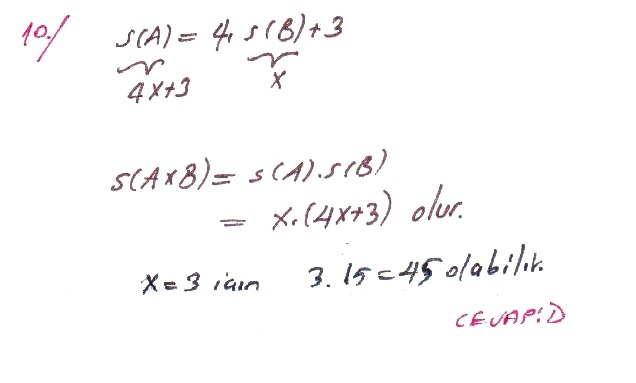 10./ s(A) = 4. s(B)+3
4x+3 x
s(AxB) = s(A).s(B)
= x.(4x+3) olur.
x=3 için 3.15=45 olabilir.
CEVAP:D